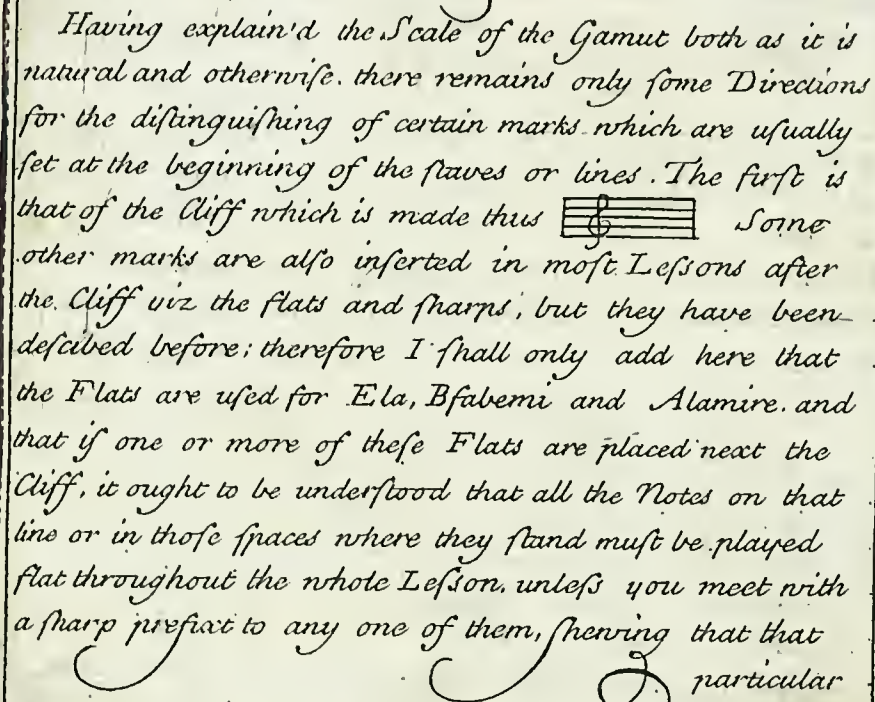 Having explain'd the Scale of the Gamut both as it is
natural and otherwiſe. there remains only ſome Directions
for the diſtinguiſhing of certain marks which are uſually
ſet at the beginning of the ſtaves or lines. The firſt is
that of the Cliff which is made thus Some
other marks are alſo inſerted in moſt Leſsons after
the Cliff viz the flats and ſharps, but they have been
deſcibed before; therefore I ſhall only add here that
the Flats are uſed for Ela, Bfabemi and Alamire. and
that if one or more of theſe Flats are placed next the
Cliff, it ought to be underſtood that all the Notes on that
line or in thoſe ſpaces where they ſtand muſt be played
flat throughout the whole Leſson. unleſs you meet with
a ſharp prefixt to any one of them, ſhewing that that
particular